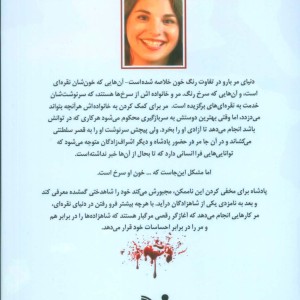 دنیای مر بارو در تفاوت رنگ خون خلاصه شده‌است- آن‌هایی که خون‌شان نقره‌ای
است، و آن‌هایی که سرخ رنگ. مر و خانواده اش از سرخ‌ها هستند، که سرنوشت‌شان
خدمت به نقره‌ای‌های برگزیده است. مر برای کمک کردن به خانواده‌اش هرآنچه بتواند
می‌دزدد، اما وقتی بهترین دوستش به سربازگیری محکوم می‌شود هرکاری که در توانش
باشد انجام می‌دهد تا آزادی او را بخرد. ولی پیچش سرنوشت او را به قصر سلطنتی
می‌کشاند و در آن جا مر در حضور پادشاه و دیگر اشراف‌زادگان متوجه می‌شود که
توانایی‌هایی فراانسانی دارد که تا بحال از آن‌ها خبر نداشته‌است.
اما مشکل این‌جاست که ... خون او سرخ است.
پادشاه برای مخفی کردن این ناممکن، مجبورش می‌کند خود را شاهدختی گمشده معرفی کند
و بعد به نامزدی یکی از شاهزادگان درآید. با هرچه بیشتر فرو رفتن در دنیای نقره‌ای،
مر کارهایی انجام می‌دهد که آغازگر رقصی مرگبار هستند که شاهزاده‌ها را در برابر هم
و مر را در برابر احساسات خود قرار می‌دهد.